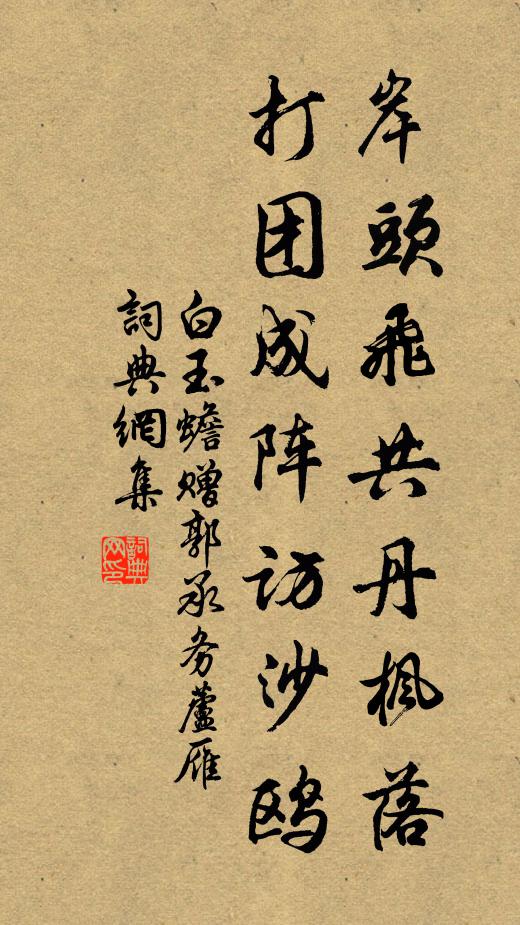 岸頭飛共丹楓落
打团成阵访沙鸥
白玉蟾赠郭承务蘆雁
詞典網集
詞典網印